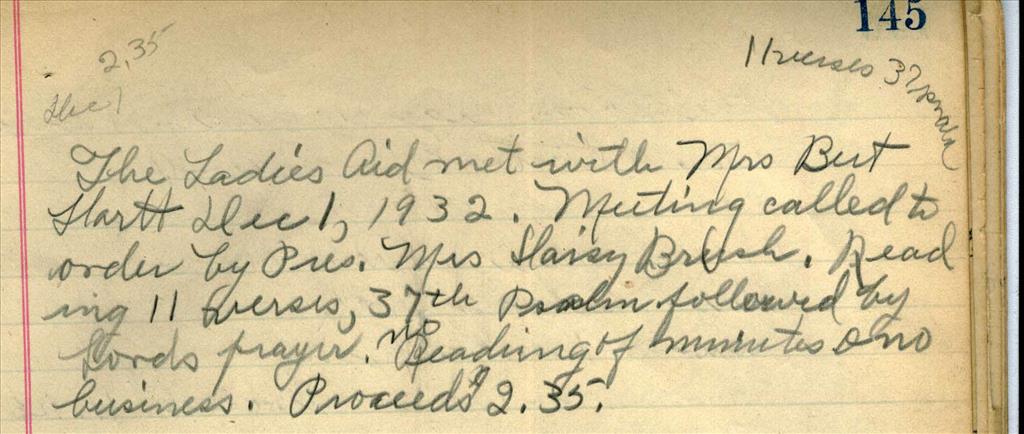 145
2.35
11 verses 37 psalm
Dec 1
The Ladies Aid met with Mrs Burt
Hartt Dec 1, 1932. Meeting called to
order by Pres. Mrs Daisy Brush. Read
ing 11 verses, 37th Psalm followed by
Lords prayer. no Reading of minutes & no
business. Proceeds 2.35.